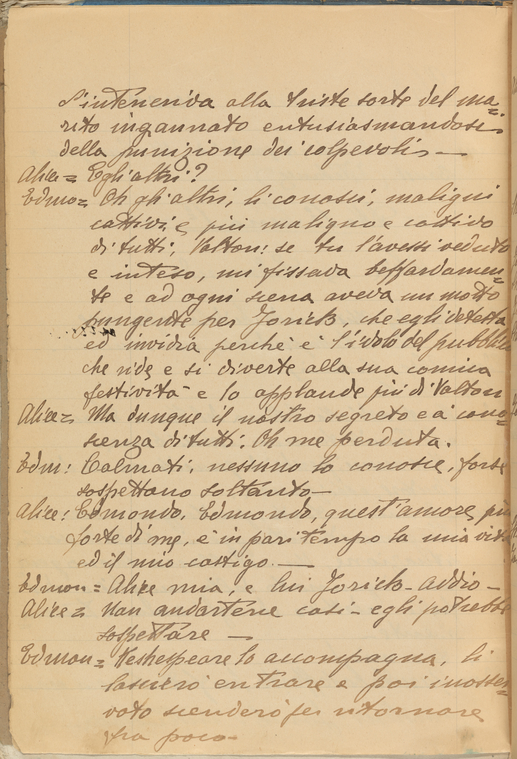 s'inteneriva alla triste sorte del ma=
rito ingannato entusiasmandosi
della punizione dei colpevoli —
Alice = Egli altri?
Edmo = Oh gli altri, li conosci, maligni
cattivi, e più maligno e cattivo
di tutti, Valton: se tu l'avessi veduto
e inteso, mi fissava beffardamen=
te e ad ogni scena aveva un motto
pungente per Jorick, che egli detesta
ed invidia perchè è l'idolo del pubblico
che ride e si diverte alla sua comica
festività e lo applaude più di Valton
Alice = Ma dunque il nostro segreto è a cono=
scenza di tutti. Oh me perduta.
Edm: Calmati, nessuno lo conosce, forse
sospettano soltanto —
Alice: Edmondo, Edmondo, quest'amore, più
forte di me, è in pari tempo la mia vita
ed il mio castigo. —
Edmon = Alice mia, e lui Jorick - addio -
Alice = Non andartene così - egli potrebbe
sospettare —
Edmon = Keshespeare lo accompagna, li
lascierò entrare e poi inosser=
vato scenderò per ritornare
fra poco -